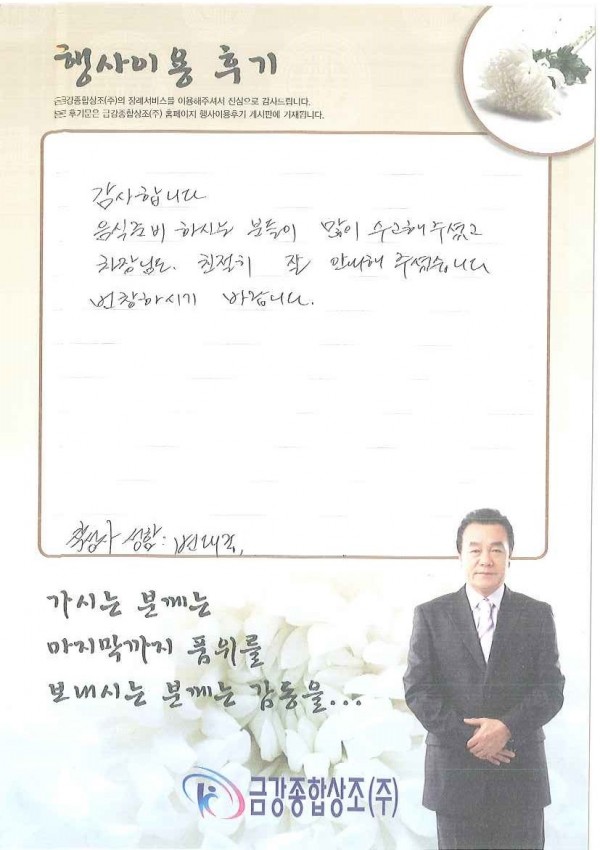 행사이용 후기
금강종합상조(수)의 장례서비스를 이용해주셔서 진심으로 감사드립니다.
본 후기문은 금강종합상조(주) 홈페이지 행사이용후기 게시판에 기재됩니다.
감사합니다
음식준비 하시는 분들이 많이 수고해주셨고
차장님도 친절히 잘 안내해 주셨습니다
번창하시기 바랍니다.
작성자 성함:
가시는 분께는
마지막까지 품위를
보내시는 분께는 감동을...
금강종합상조(주)